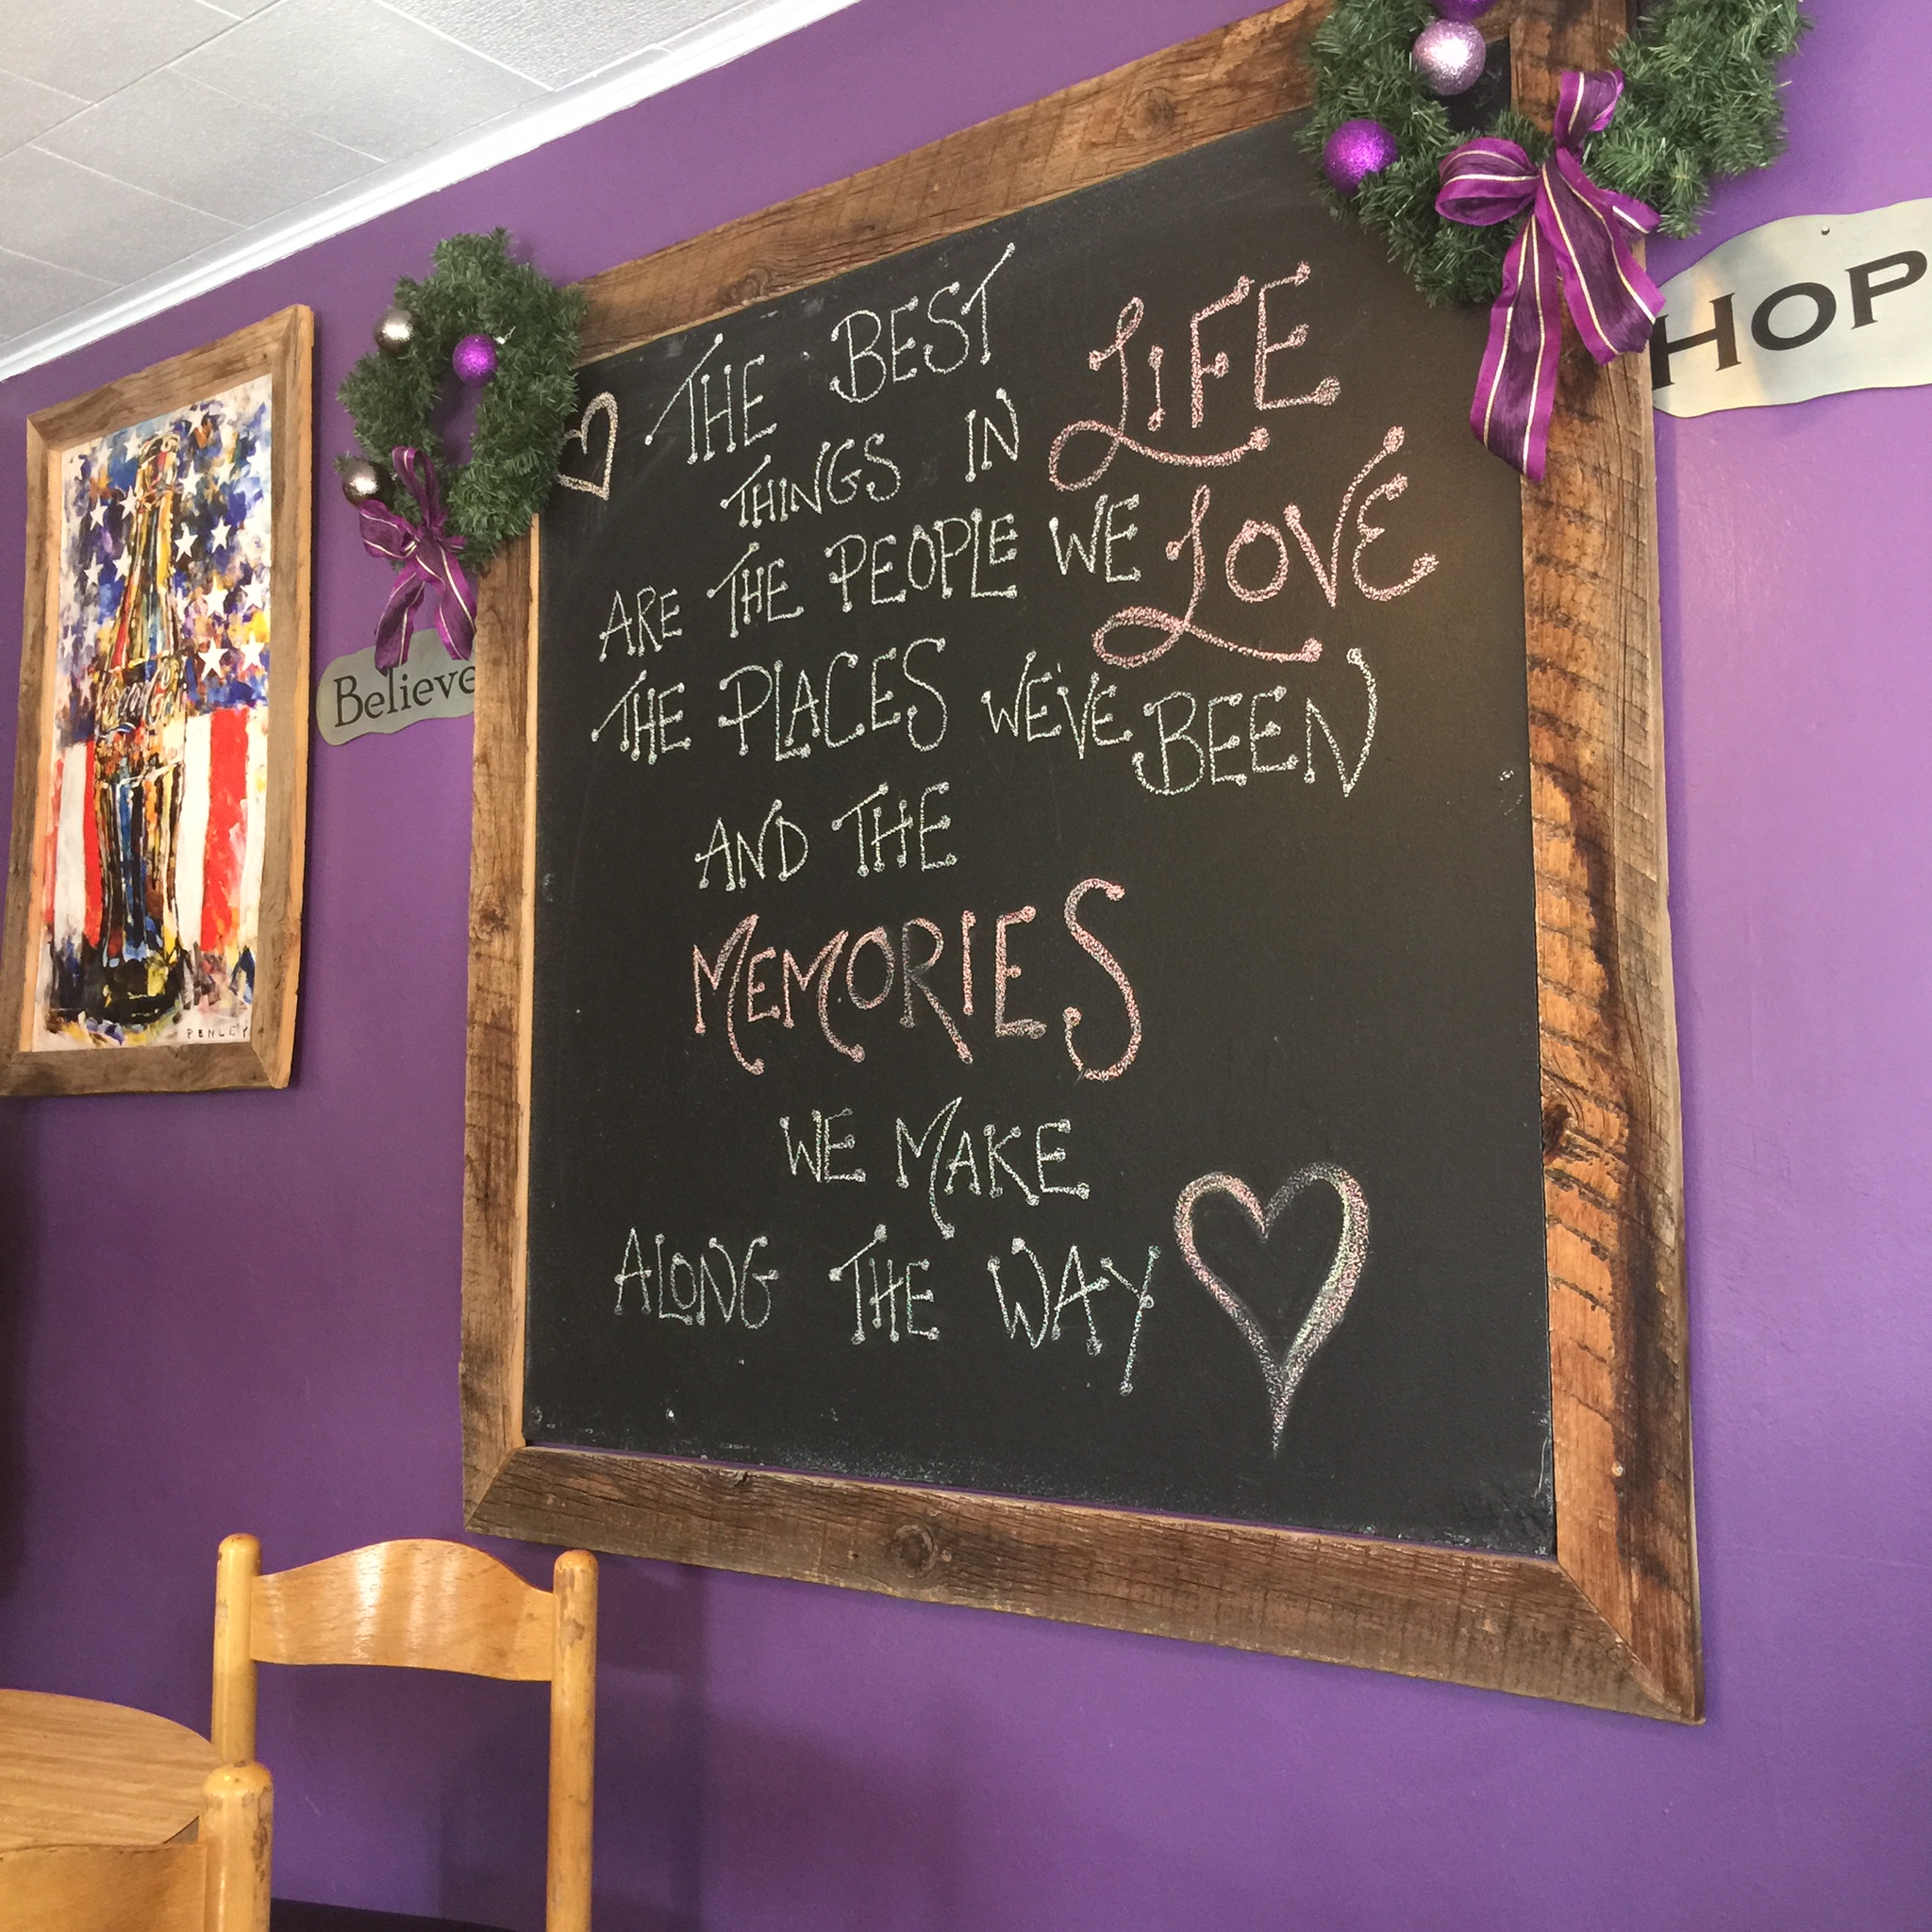 THE BEST
THINGS IN LIFE
ARE THE PEOPLE WE LOVE
THE PLACES WE'VE BEEN
AND THE
MEMORIES
WE MAKE
ALONG THE WAY
Believe
HOP
Coca-Cola
PENLEY